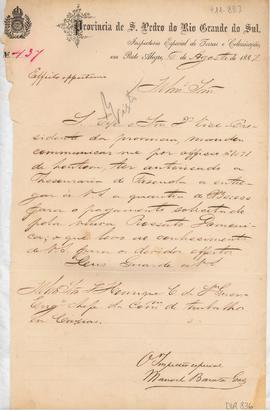 411.883
Provincia de S. Pedro do Rio Grande do Sul.
Inspectoria Especial de Terras e Colonisação,
em Porto Alegre, de Agosto de 188
Nº 437
Illmo Snr
S. Exa o Snr Dr Vice-Pre-
sidente da provincia, mandou
communicar me por officio
de hontem, ter autorisado a
Thesouraria de Fazenda a entre-
gar a V. S. a quantia de
para o pagamento solicitado
pela viuva Rossato Domeni-
ca; o que levo ao conhecimento
de V. S. para o devido effeito.
Deus Guarde a V. S.
Illmo Snr Dr Henrique C. de
Engo Chefe da Comm de trabalho
em Caxias.
O Inspector especial
Manoel Barata Góes